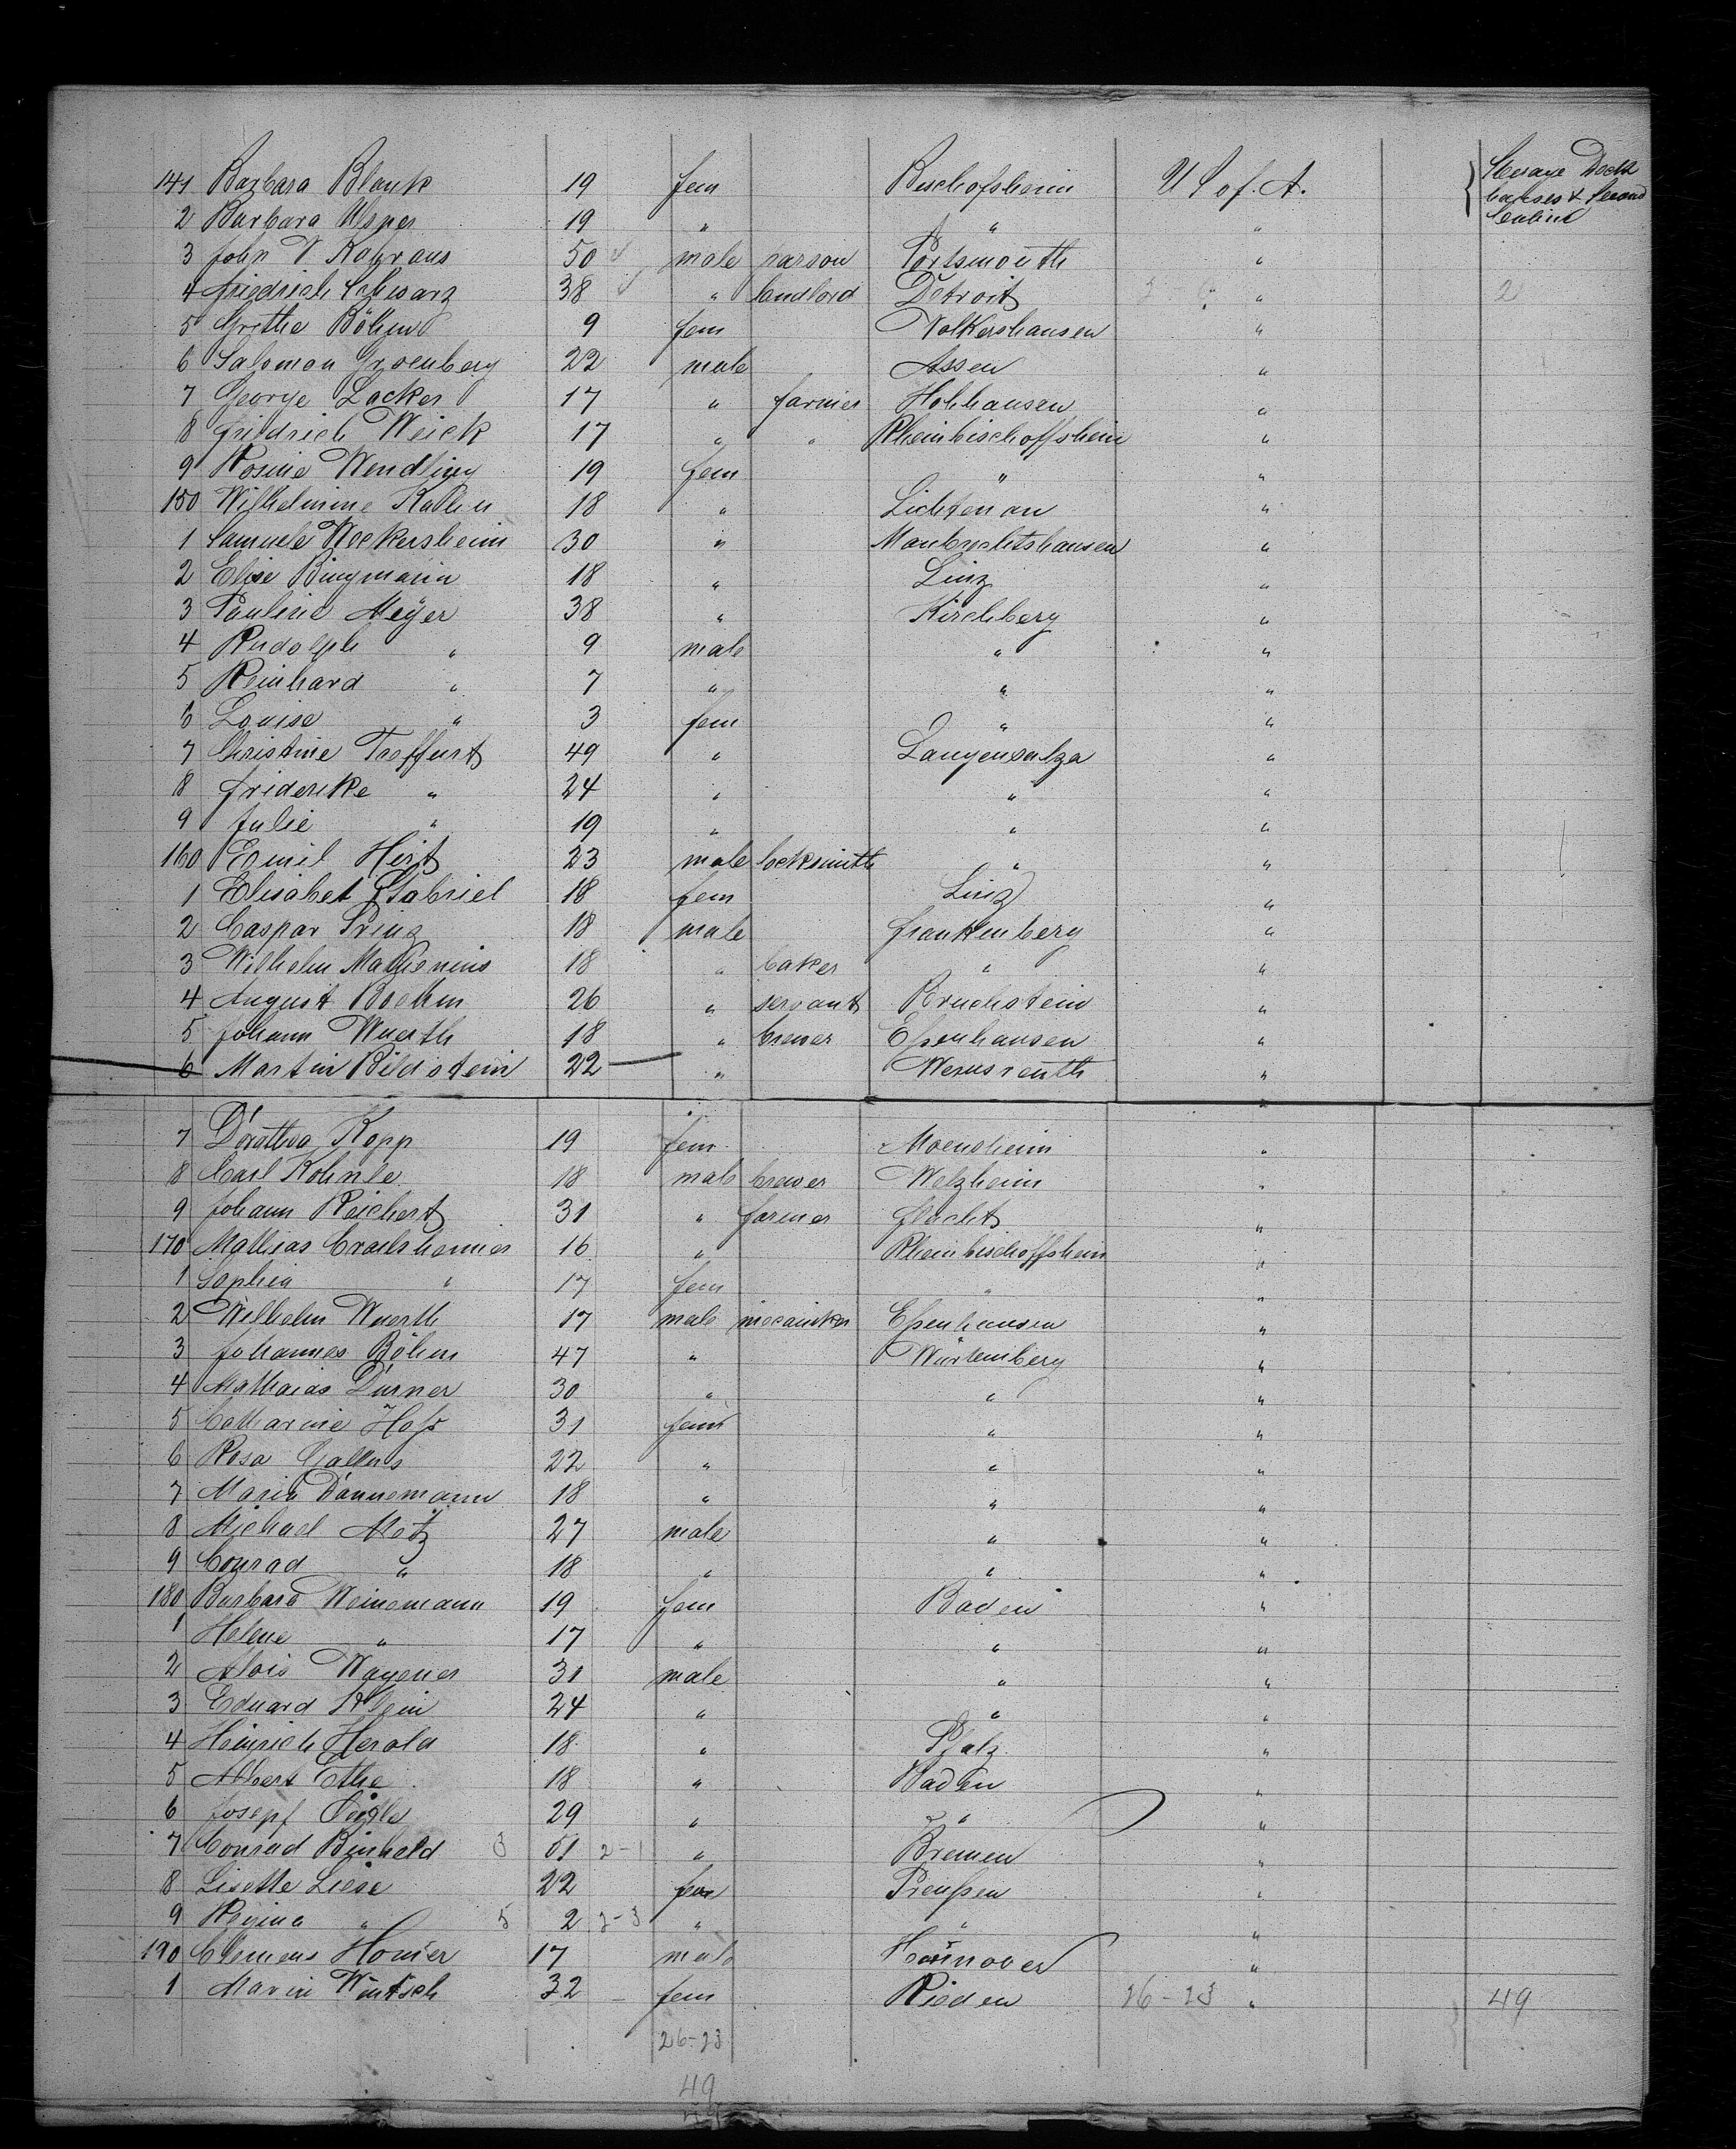 141 Barbara Blank 19 fem Bischofsheim U S of A. Steerage Deck
2 Barbara 19 " " " houses & Second
3 John V 50 male parson Portsmouth " Cabin
4 Friedrich Schwarz 38 " landlord Detroit " 2
5 Grethe Böhm 9 fem Volkershausen "
6 Salomon Groenberg 22 male Assen "
7 George Lacker 17 " farmer Hohhausen "
8 Friedrich Weick 17 " " Rheinbischoffsheim "
9 Rosine Wendling 19 fem " "
150 Wilhelmine 18 " Lichtenau "
1 Samuele Weckersheim 30 " "
2 Elise Bingmann 18 " Linz "
3 Pauline Meÿer 38 " Kirchberg "
4 Rudolph " 9 male " "
5 Reinhard " 7 " " "
6 Louise " 3 fem " "
7 Christine Treffurt 49 " Langensalza "
8 Friderike " 24 " " "
9 Julie " 19 " " "
160 Emil Hirt 23 male locksmith " "
1 Elisabet Gabriel 18 fem Linz "
2 Caspar Prinz 18 male Frankenberg "
3 Wilhelm 18 " baker " "
4 August Boehm 26 " servant Bruchstein "
5 Johann Wuerth 18 " brewer Eßenhausen "
6 Martin Bildstein 22 " "
7 Dorothea Kopp 19 fem Moensheim "
8 Carl Kohnle 18 male brewer Welzheim "
9 Johann Reichert 31 " farmer Flacht "
170 Mathias Crailsheimer 16 " Rheinbischoffsheim "
1 Sophia " 17 fem " "
2 Wilhelm Wuerth 17 male Eßenhausen "
3 Johannes Böhm 47 " Würtemberg "
4 Mathaias Durner 30 " " "
5 Catharine Hofs 31 fem " "
6 Rosa 22 " " "
7 Maria Dannemann 18 " " "
8 Michael Motz 27 male " "
9 Conrad " 18 " " "
180 Barbara Weinemann 19 fem Baden "
1 Helene " 17 " " "
2 Alois Wagener 31 male " "
3 Eduard Klein 24 " " "
4 Heinrich Herold 18 " Pfalz "
5 Albert Ethe 18 " Baden "
6 Josepf 29 " " "
7 Conrad Binhold 3 51 2-1 " Bremen "
8 Lisette Liese 22 fem Preußen "
9 Regina " 5 2 2-3 " " "
190 Clemens Homer 17 male Hannover "
1 Marie Wintsch 32 fem Rieden 26-23 " 49
26-23
49